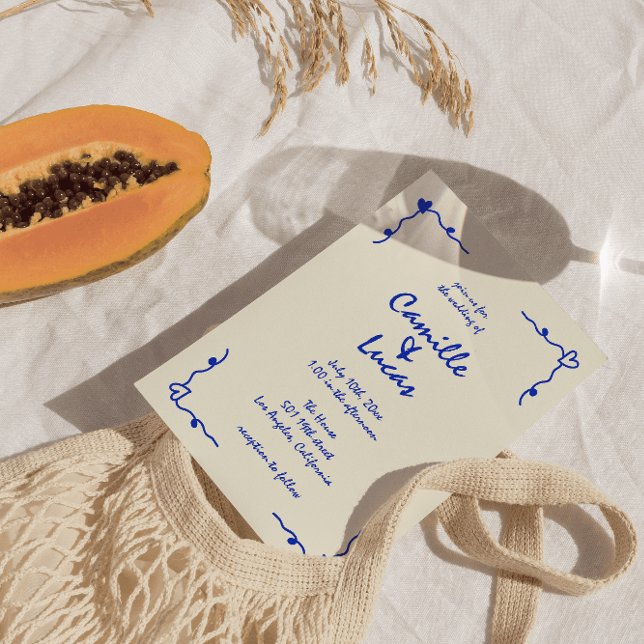 join us for
the wedding of
Camille
&
Lucas
July 10th, 20xx
1.00 in the afternoon
The House
501 19th street
Los Angeles, California
reception to follow